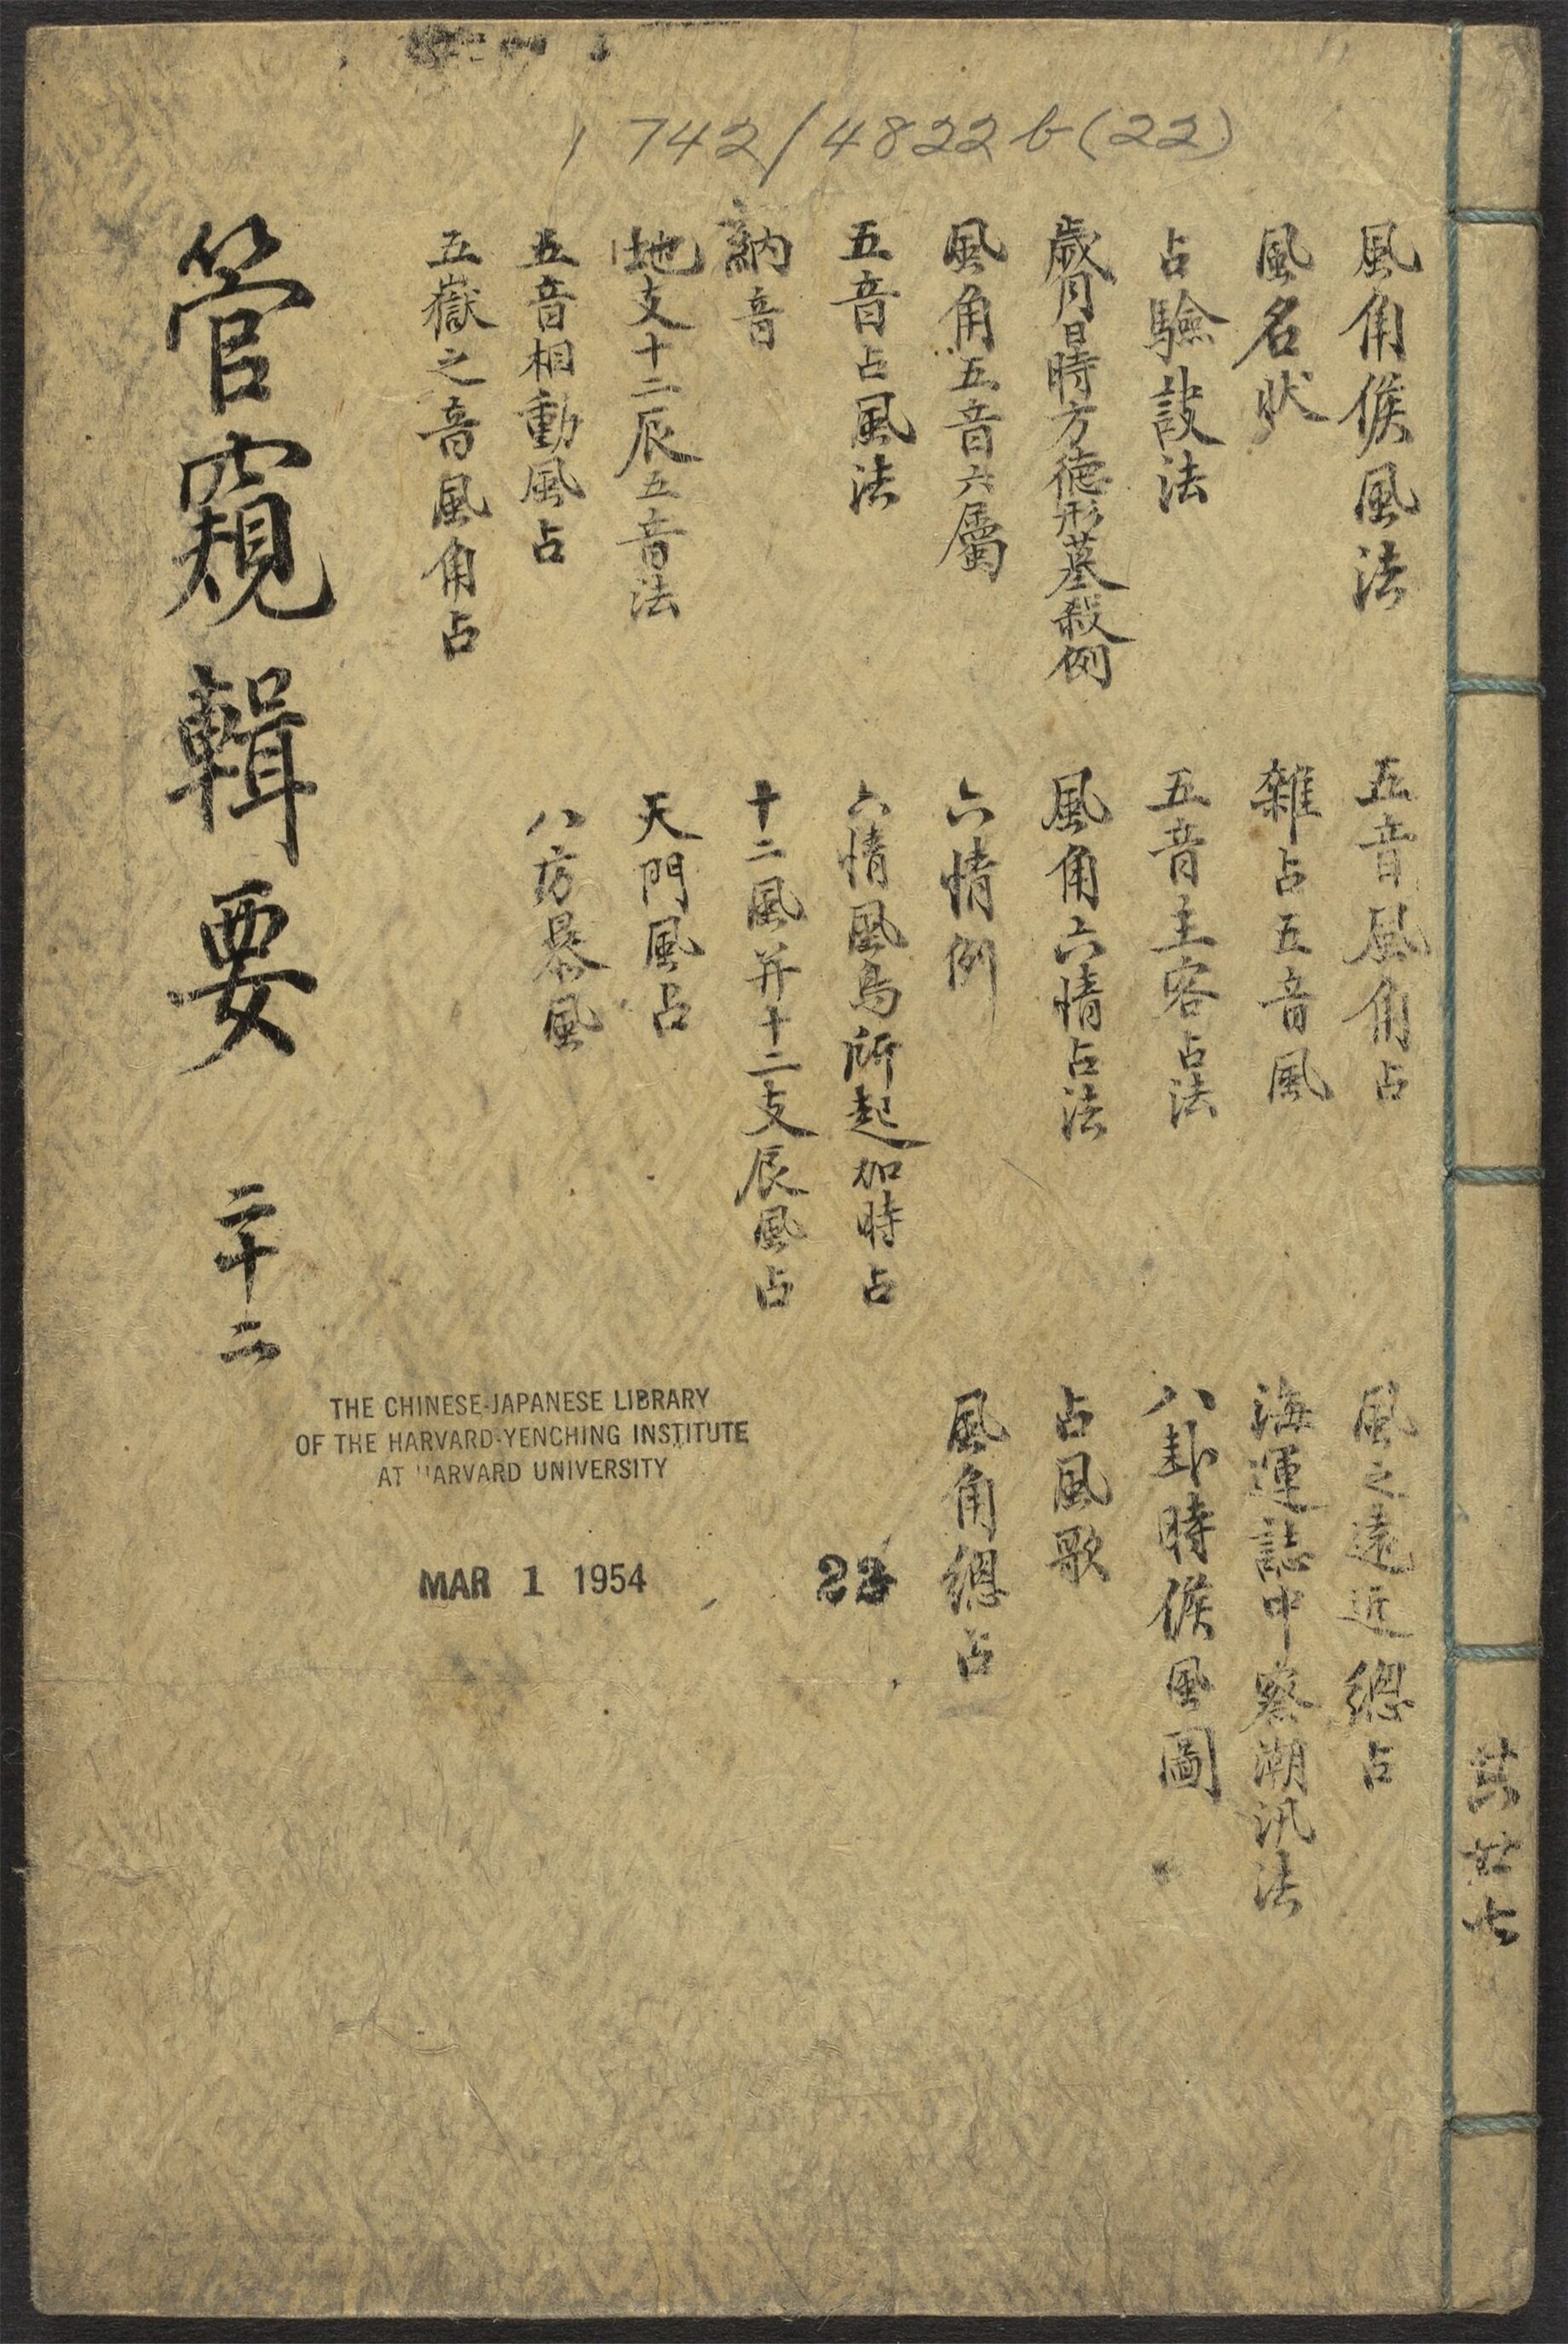 1742/4822b(22)
風角候風法
風名狀
占驗設法
歲月日時方德形墓殺例
風角五音六屬
五音占風法
納音
地支十二辰五音法
五音相動風占
五嶽之音風角占
五音風角占
雜占五音風
五音主客占法
風角六情占法
六情例
六情風鳥所起加時占
十二風并十二支辰風占
天門風占
八方暴風
風之遠近總占
海運誌中察潮汛法
八卦時候風圖
占風歌
風角總占
管窺輯要 二十二
THE CHINESE-JAPANESE LIBRARY
OF THE HARVARD-YENCHING INSTITUTE
AT HARVARD UNIVERSITY
MAR 1 1954
共廿七